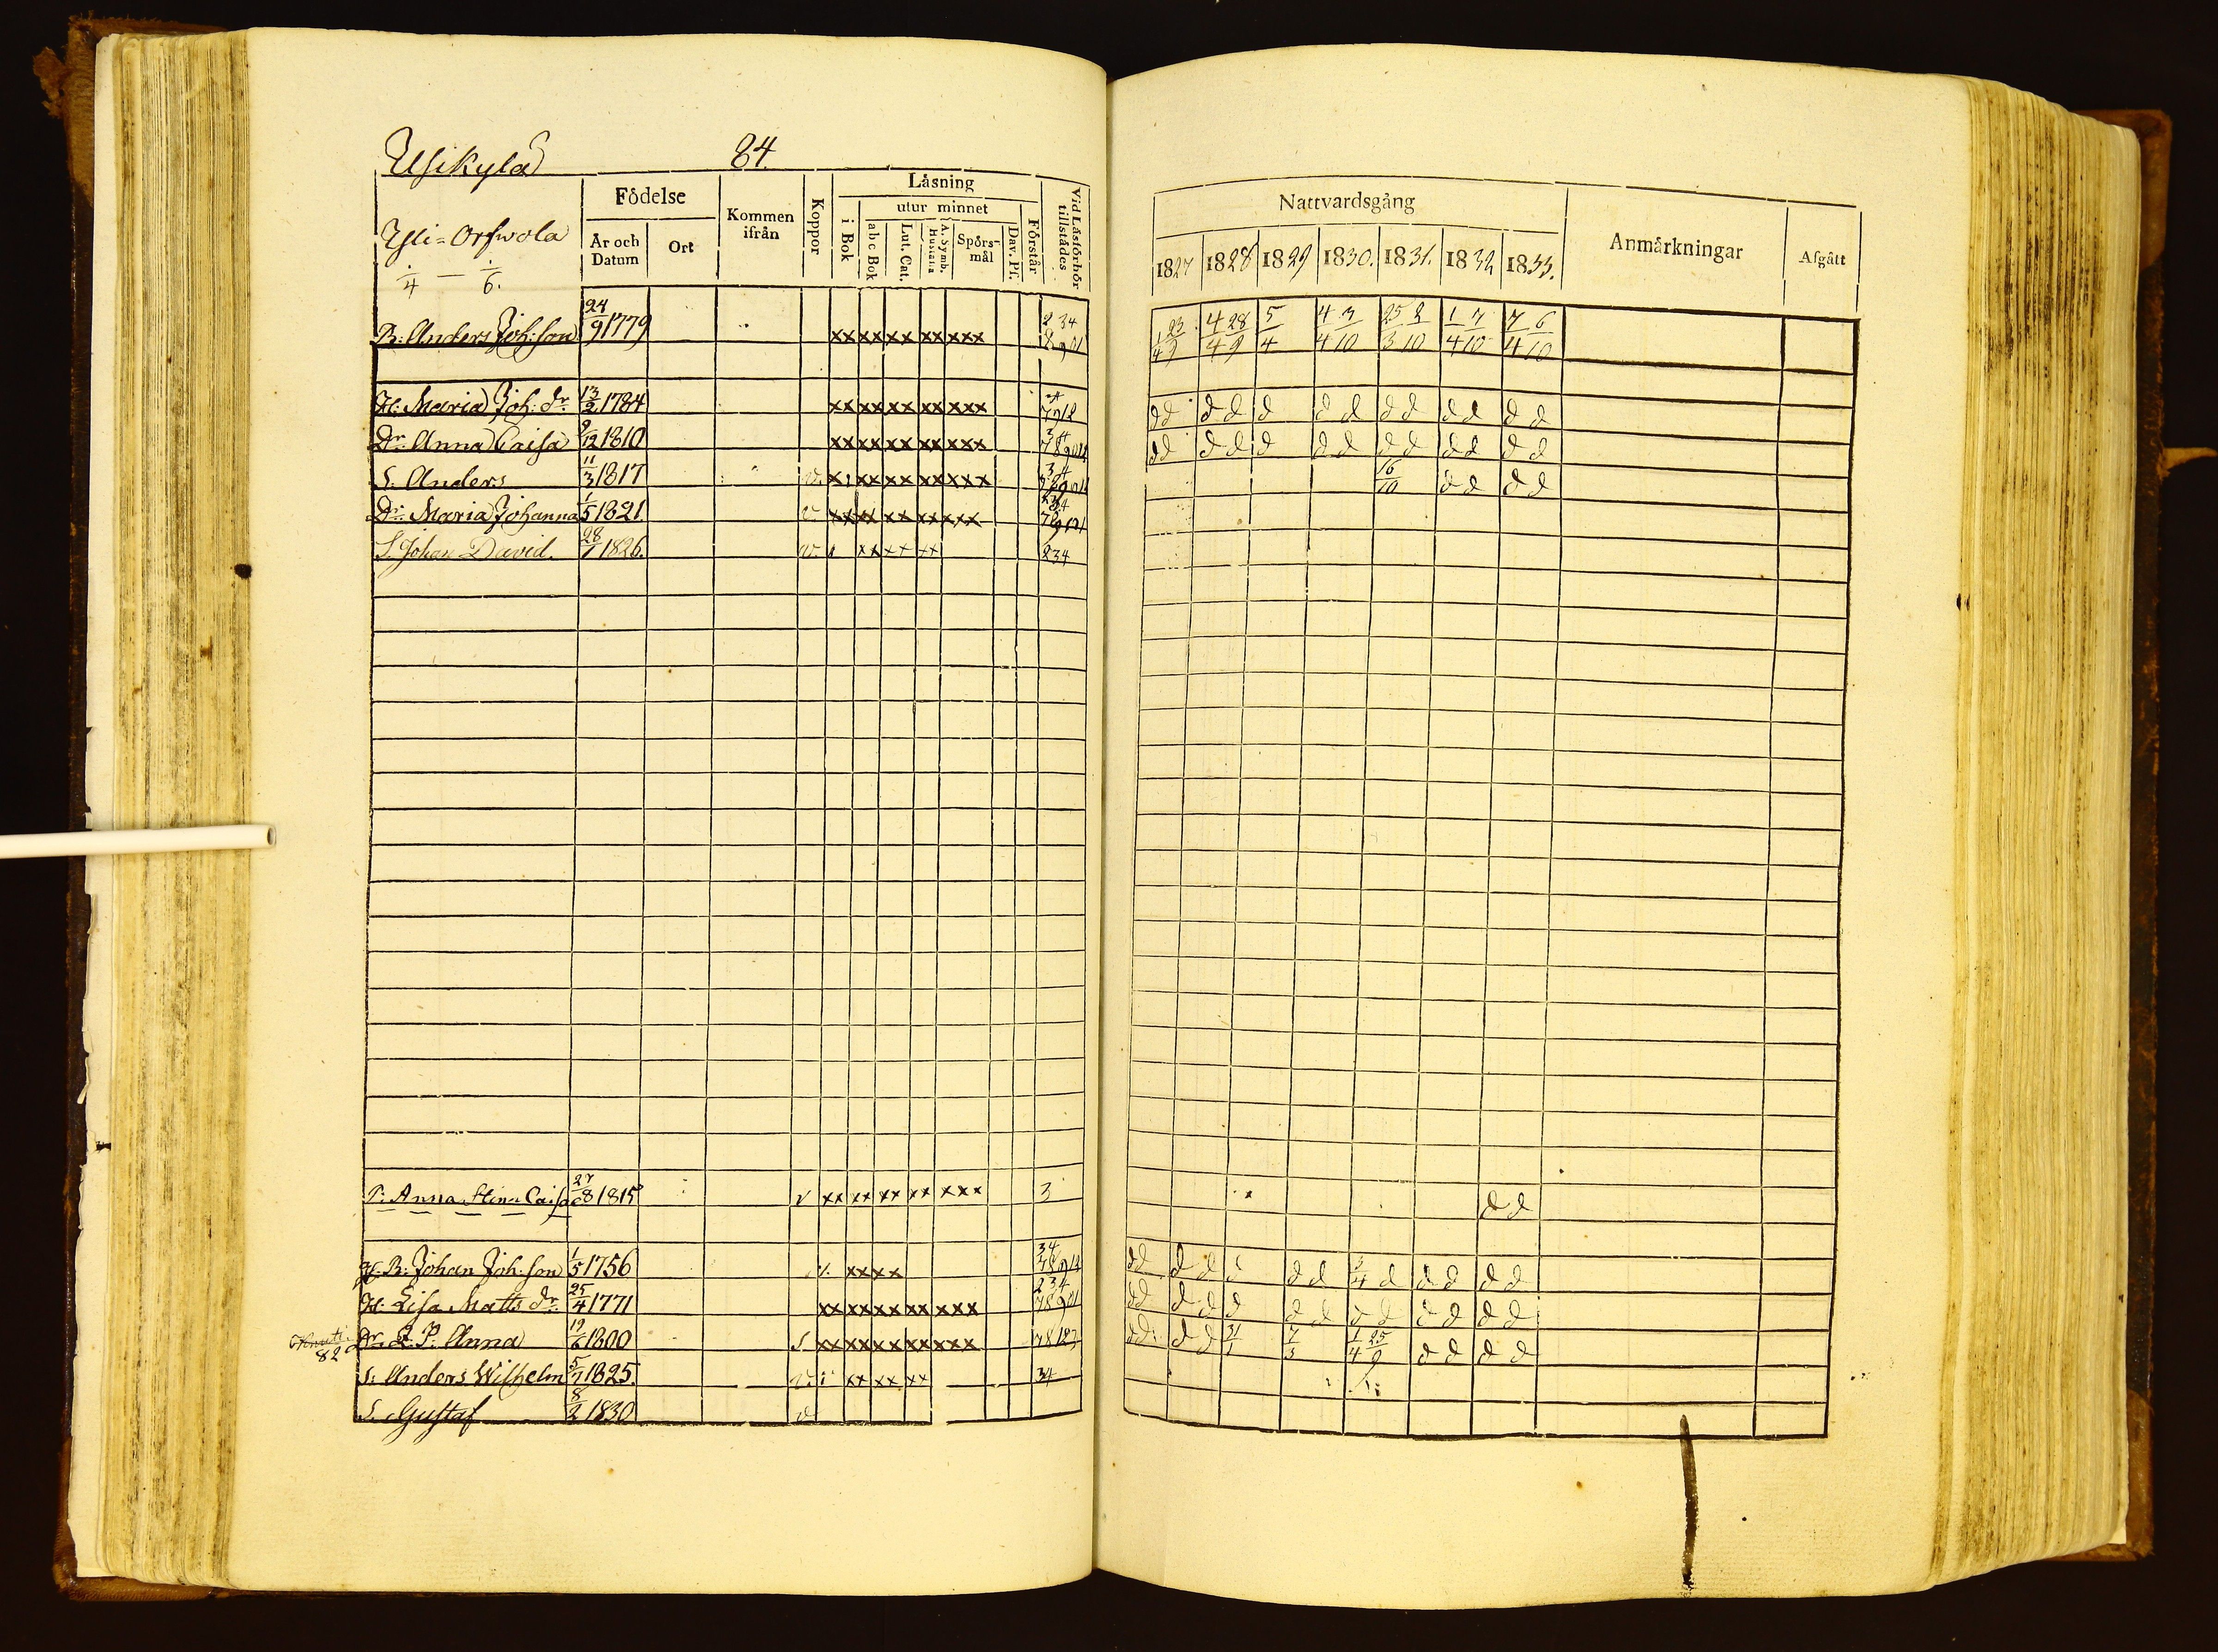 Usikylä 84.
Yli=Orfwola
1/4 — 1/6.
Födelse
År och Datum
Ort
Kommen ifrån
Koppor
Läsning
i Bok
utur minnet
abc Bok
Lut. Cat.
A. Symb. Hustafla
Spörsmål
Dav. Ps.
Förstår
Vid Läsförhör tillstådes
B: Anders Joh:son 24/9 1779 xx xx xx xx xxx 2 34
H: Maria Joh: dr 13/2 1784 xx xx xx xx xxx
Dr Anna Caisa 9/12 1810 xx xx xx xx xxx
S. Anders 11/3 1817 v. xx xx xx xxx
Dr: Maria Johanna 1/5 1821 v xx xx xx xx xxx
S. Johan David. 28/1 1826. v. x xx xx xx 234
P: Anna Stina Caisa 27/8 1815 v xx xx xx xx xxx 3
f. B: Johan Joh:son 1/5 1756 v. xx xx
H: Lisa Matts dr 25/4 1771 xx xx xx xx xxx 234 78901
82
Dr Q. P. Anna 19/6 1800 S xx xx xx xx xxx
S: Anders Wilhelm 5/7 1825. v: xx xx xx 34
S. Gustaf 8/2 1830 v
Nattvardsgång
1827 1828 1829 1830. 1831. 1832 1833.
Anmärkningar
Afgått
1/4 23/9 4/4 28/9 5/4 4/4 3/10 25/3 2/10 1/4 7/10 7/4 6/10
d d d d d d d d d d d d d
d d d d d d d d d d d d d
16/10 d d d d
d d
d d d d d d d 3/4 d d d d d
d d d d d d d d d d d d d
d d d d 31/1 7/3 1/4 25/9 d d d d